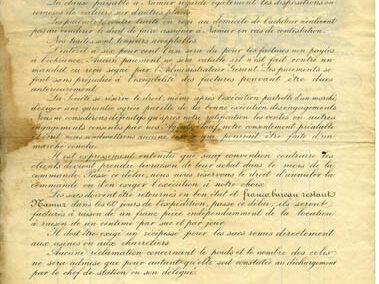 La clause payable à Namur regarde également les dispositions ou
remises de valeurs sur d'autres places.
Les paiements contre traite ou reçu au domicile de l'acheteur n'ôtent
pas au vendeur le droit de faire assigner à Namur en cas de contestation.
Nos traites sont toujours acceptables.
L'intérêt à six pour cent l'an sera dû pour les factures non payées
à l'échéance. Aucun paiement ne sera valable s'il n'est fait contre un
mandat ou reçu signé par l'Administrateur Gérant. Les paiements se
font sans préjudice à l'exigibilité des factures pouvant être dues
antérieurement.
La Société se réserve le droit, même après l'exécution partielle d'un marché,
d'exiger une garantie agréée par elle de la bonne exécution des engagements.
Nous ne considérons définitifs qu'après notre ratification les ventes ou autres
engagements consentis par nos Sauf notre consentement préalable
et écrit nous n'admettons aucune pourrait être faite d'un
marché conclu.
Il est expressément entendu que sauf convention contraire les
clients devront prendre livraison de leur achat dans le mois de la
commande. Passé ce délai, nous nous réservons le droit d'annuler la
commande ou d'en exiger l'exécution à notre choix.
Les sacs devront être retournés en bon état et franco bureau restant
Namur dans les 60 jours de l'expédition, passé ce délai, ils seront
facturés à raison de un franc pièce indépendamment de la location
à raison de un centime par sac et par jour.
Il doit être exigé un récépissé pour les sacs remis directement
aux usines ou aux charretiers.
Aucune réclamation concernant le poids et le nombre des colis
ne sera admise que pour autant qu'elle soit constatée au déchargement
par le chef de station ou son délégué.